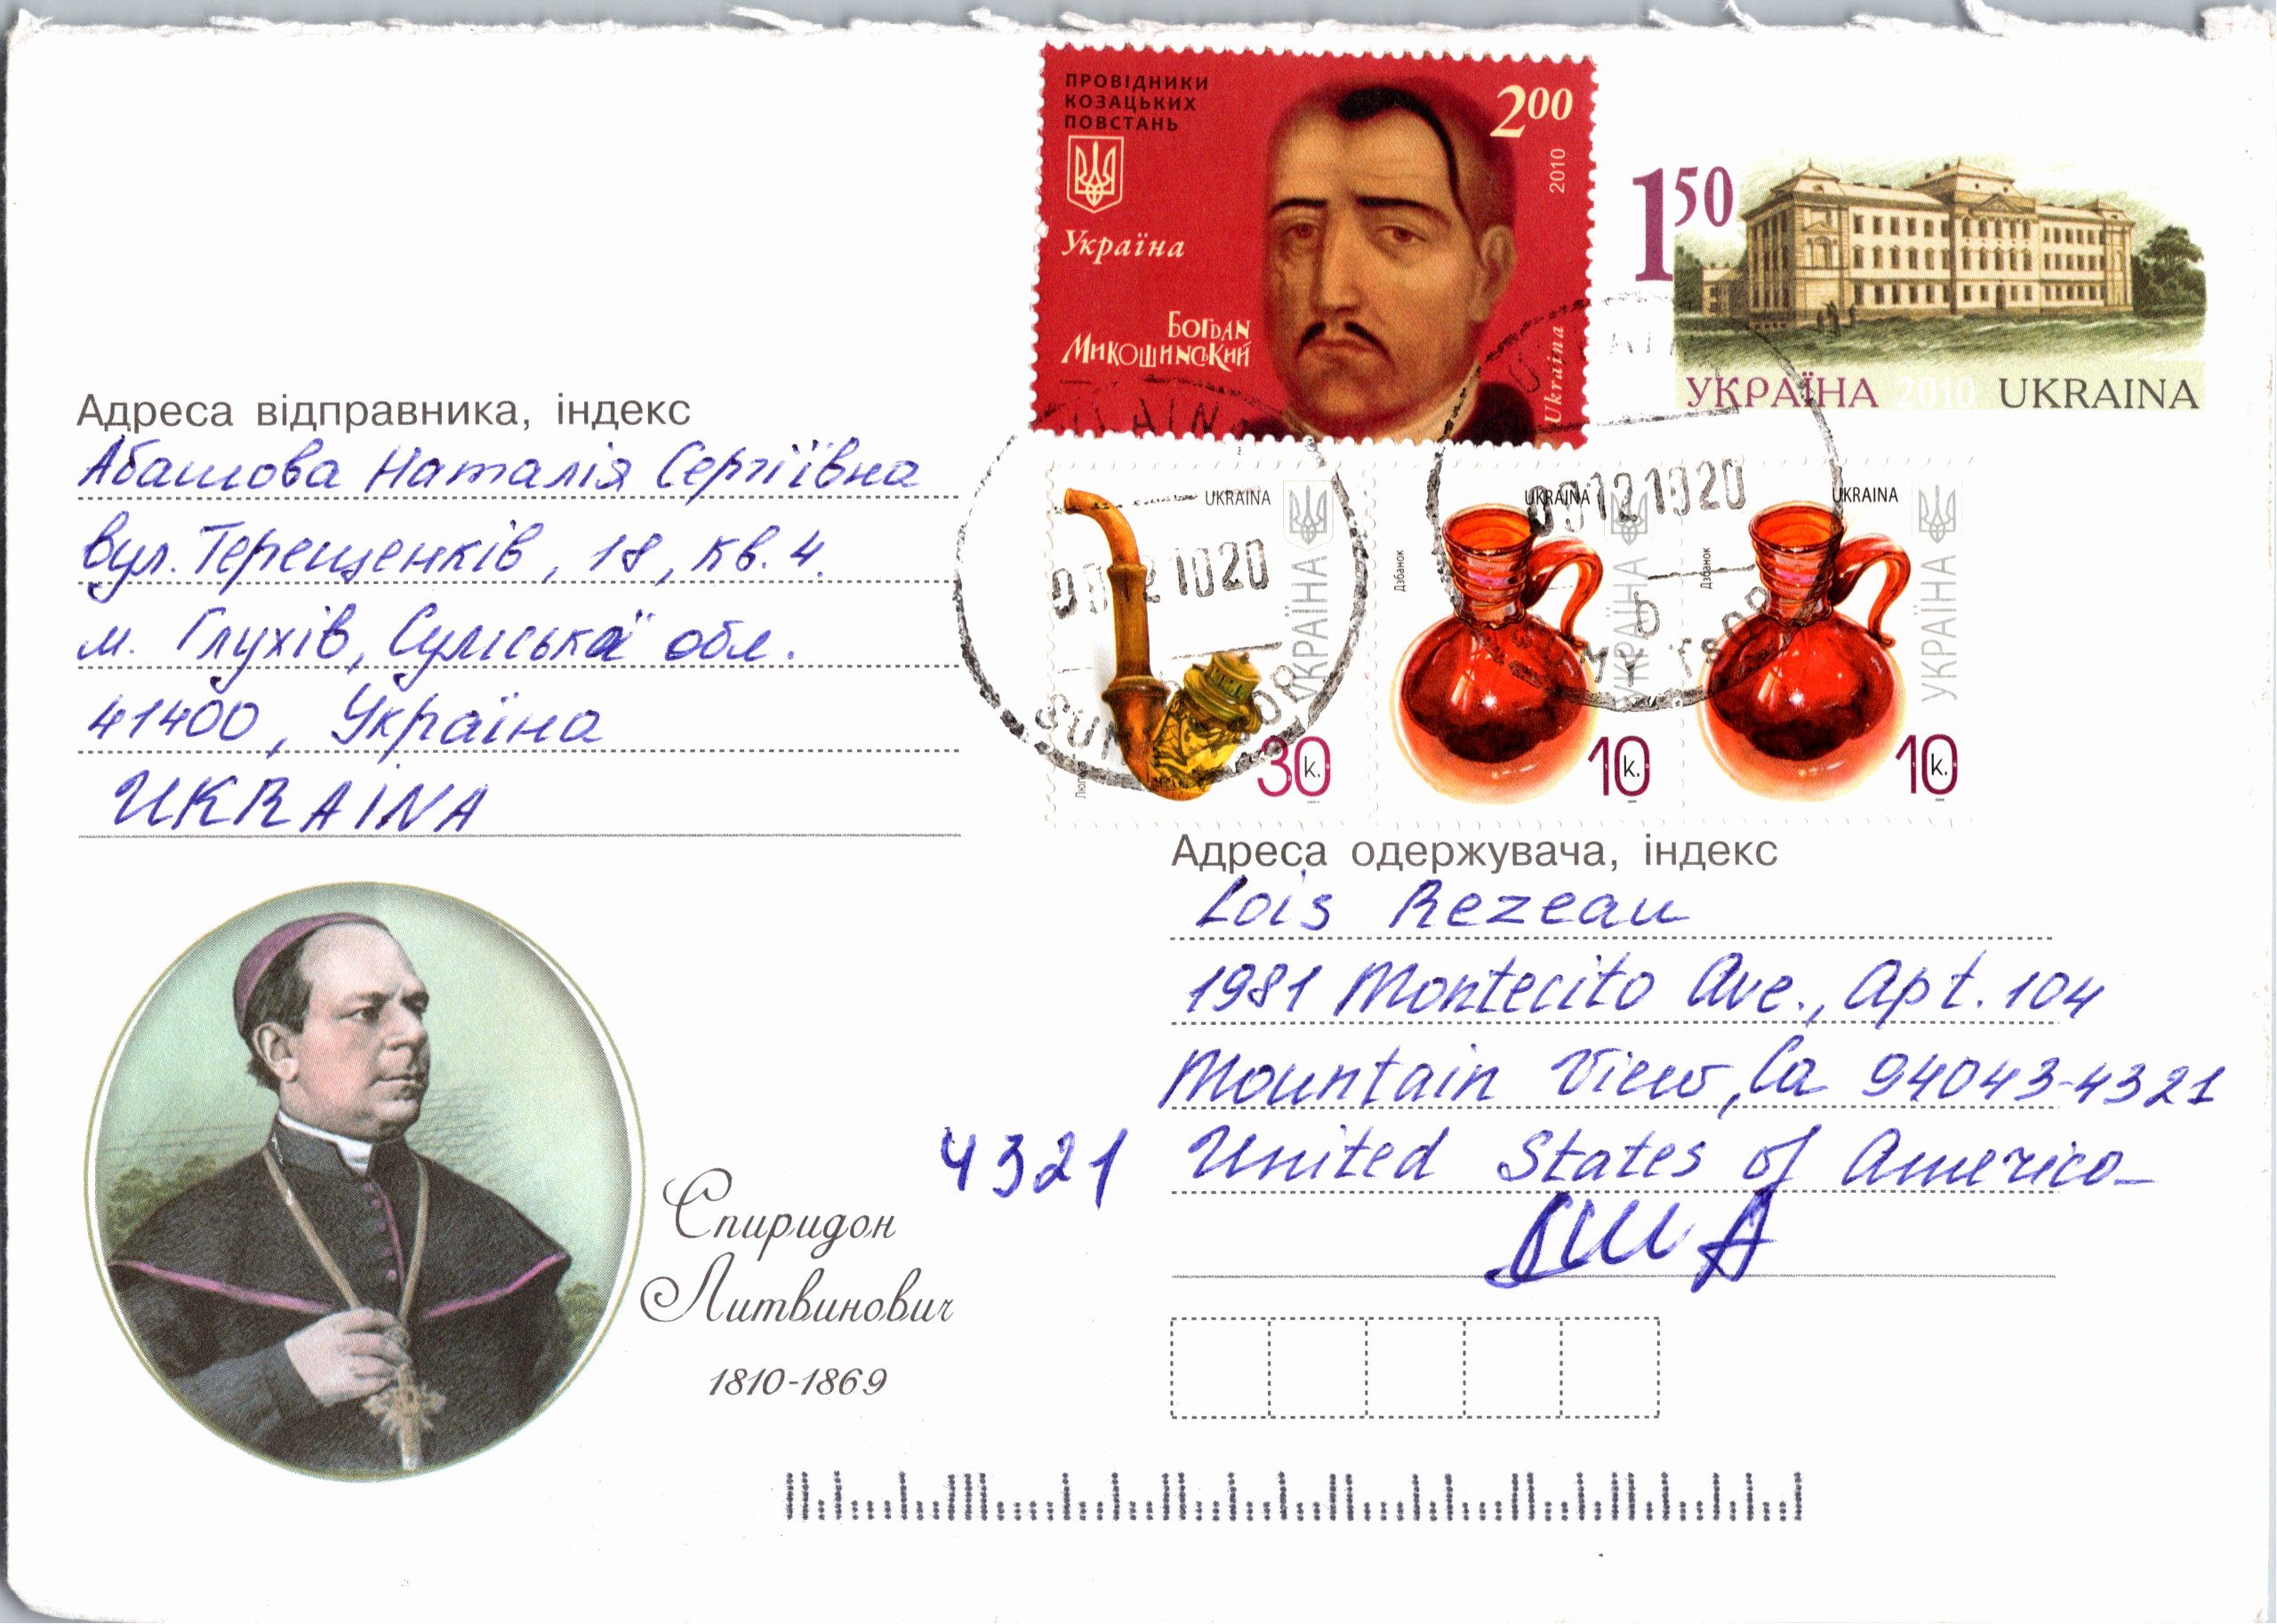 ПРОВІДНИКИ
КОЗАЦЬКИХ
ПОВСТАНЬ
2 00
2010
Україна
Богдан
Микошинський
Ukraina
1 50
УКРАЇНА 2010 UKRAINA
Адреса відправника, індекс
Абашова Наталія Сергіївна
вул. Терещенків, 18, кв. 4.
м. Глухів, Сумської обл.
41400, Україна
UKRAINA
UKRAINA
УКРАЇНА
30 к.
UKRAINA
УКРАЇНА
Дзбанок
10 к.
UKRAINA
УКРАЇНА
Дзбанок
10 к.
Адреса одержувача, індекс
Lois Rezeau
1981 Montecito Ave., Apt. 104
Mountain View, Ca 94043-4321
4321 United States of America
США
Спиридон
Литвинович
1810-1869